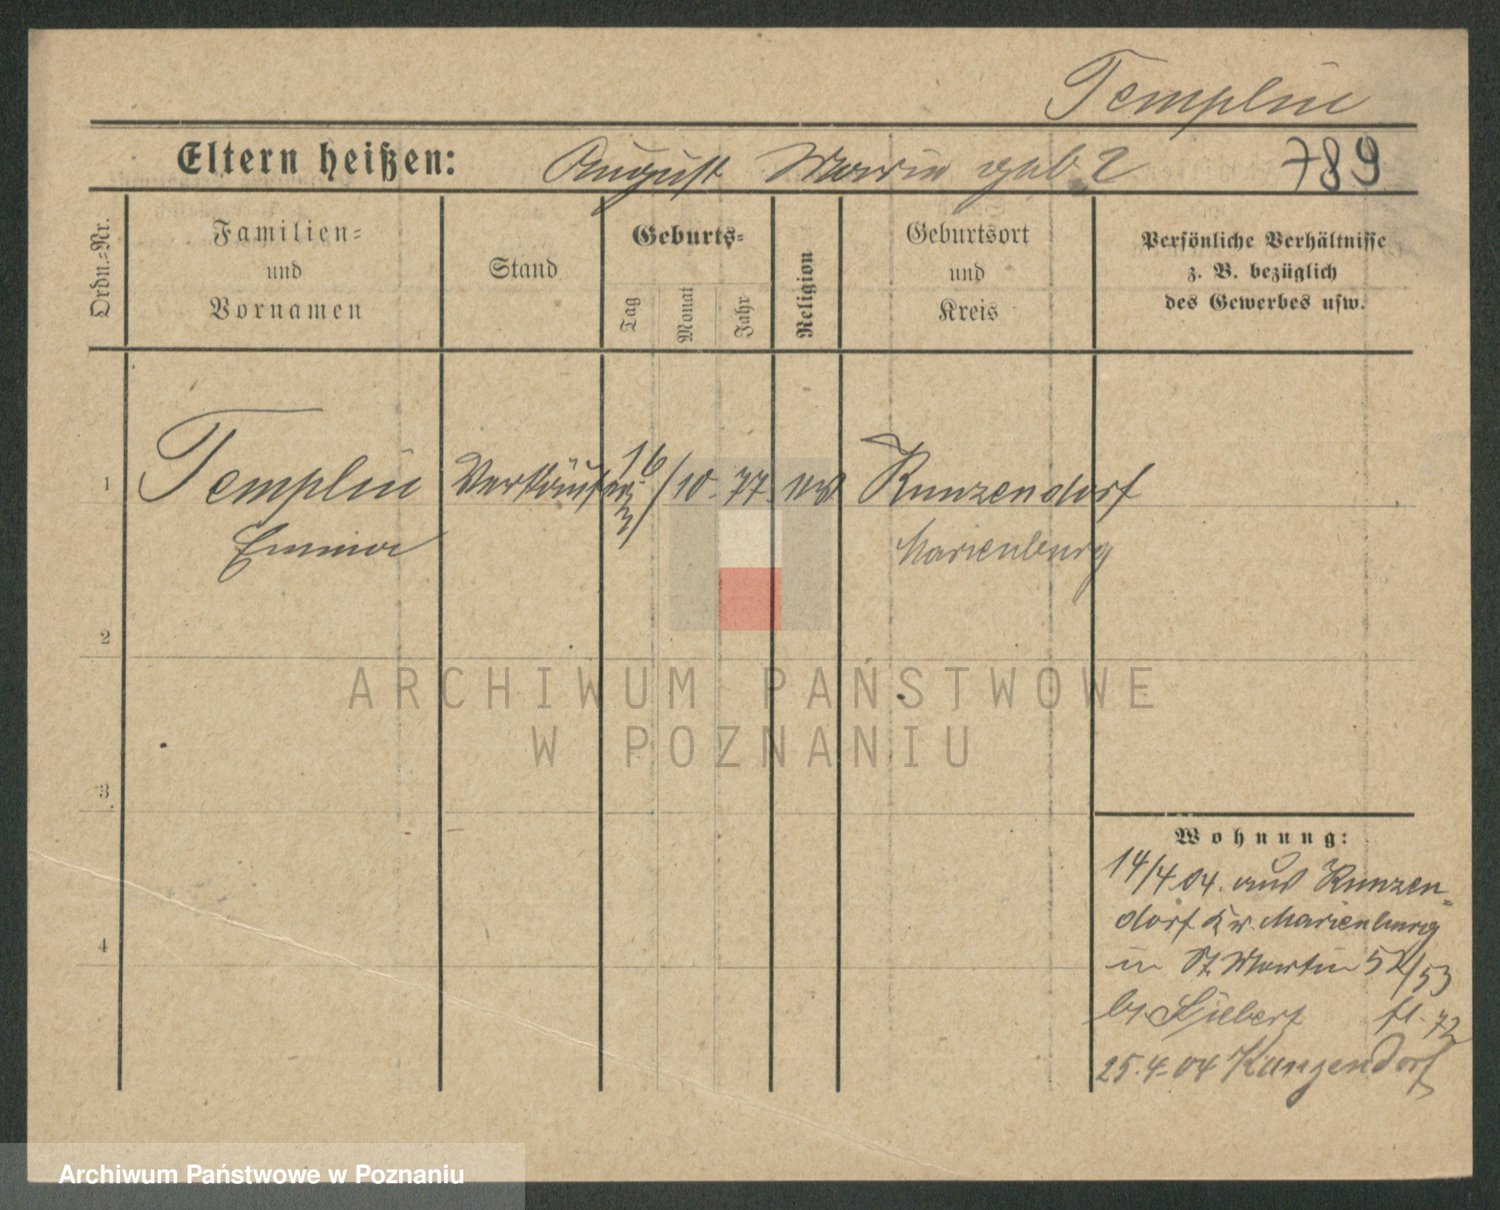 Templin
Eltern heißen: August Marie geb ? 789
Ordn.-Nr.
Familien-
und
Vornamen
Stand
Geburts-
Tag
Monat
Jahr
Religion
Geburtsort
und
Kreis
Persönliche Verhältnisse
z. B. bezüglich
des Gewerbes usw.
1 Templin Verkäuferin 16/10. 77. Kunzendorf
Emma Marienburg
2
3
4
Wohnung:
14/4.04. aus Kunzen-
dorf Kr. Marienburg
in St. Martin 52/53
b. Siebert fl. 72
25.4.04 Kunzendorf
ARCHIWUM PAŃSTWOWE
W POZNANIU
Archiwum Państwowe w Poznaniu